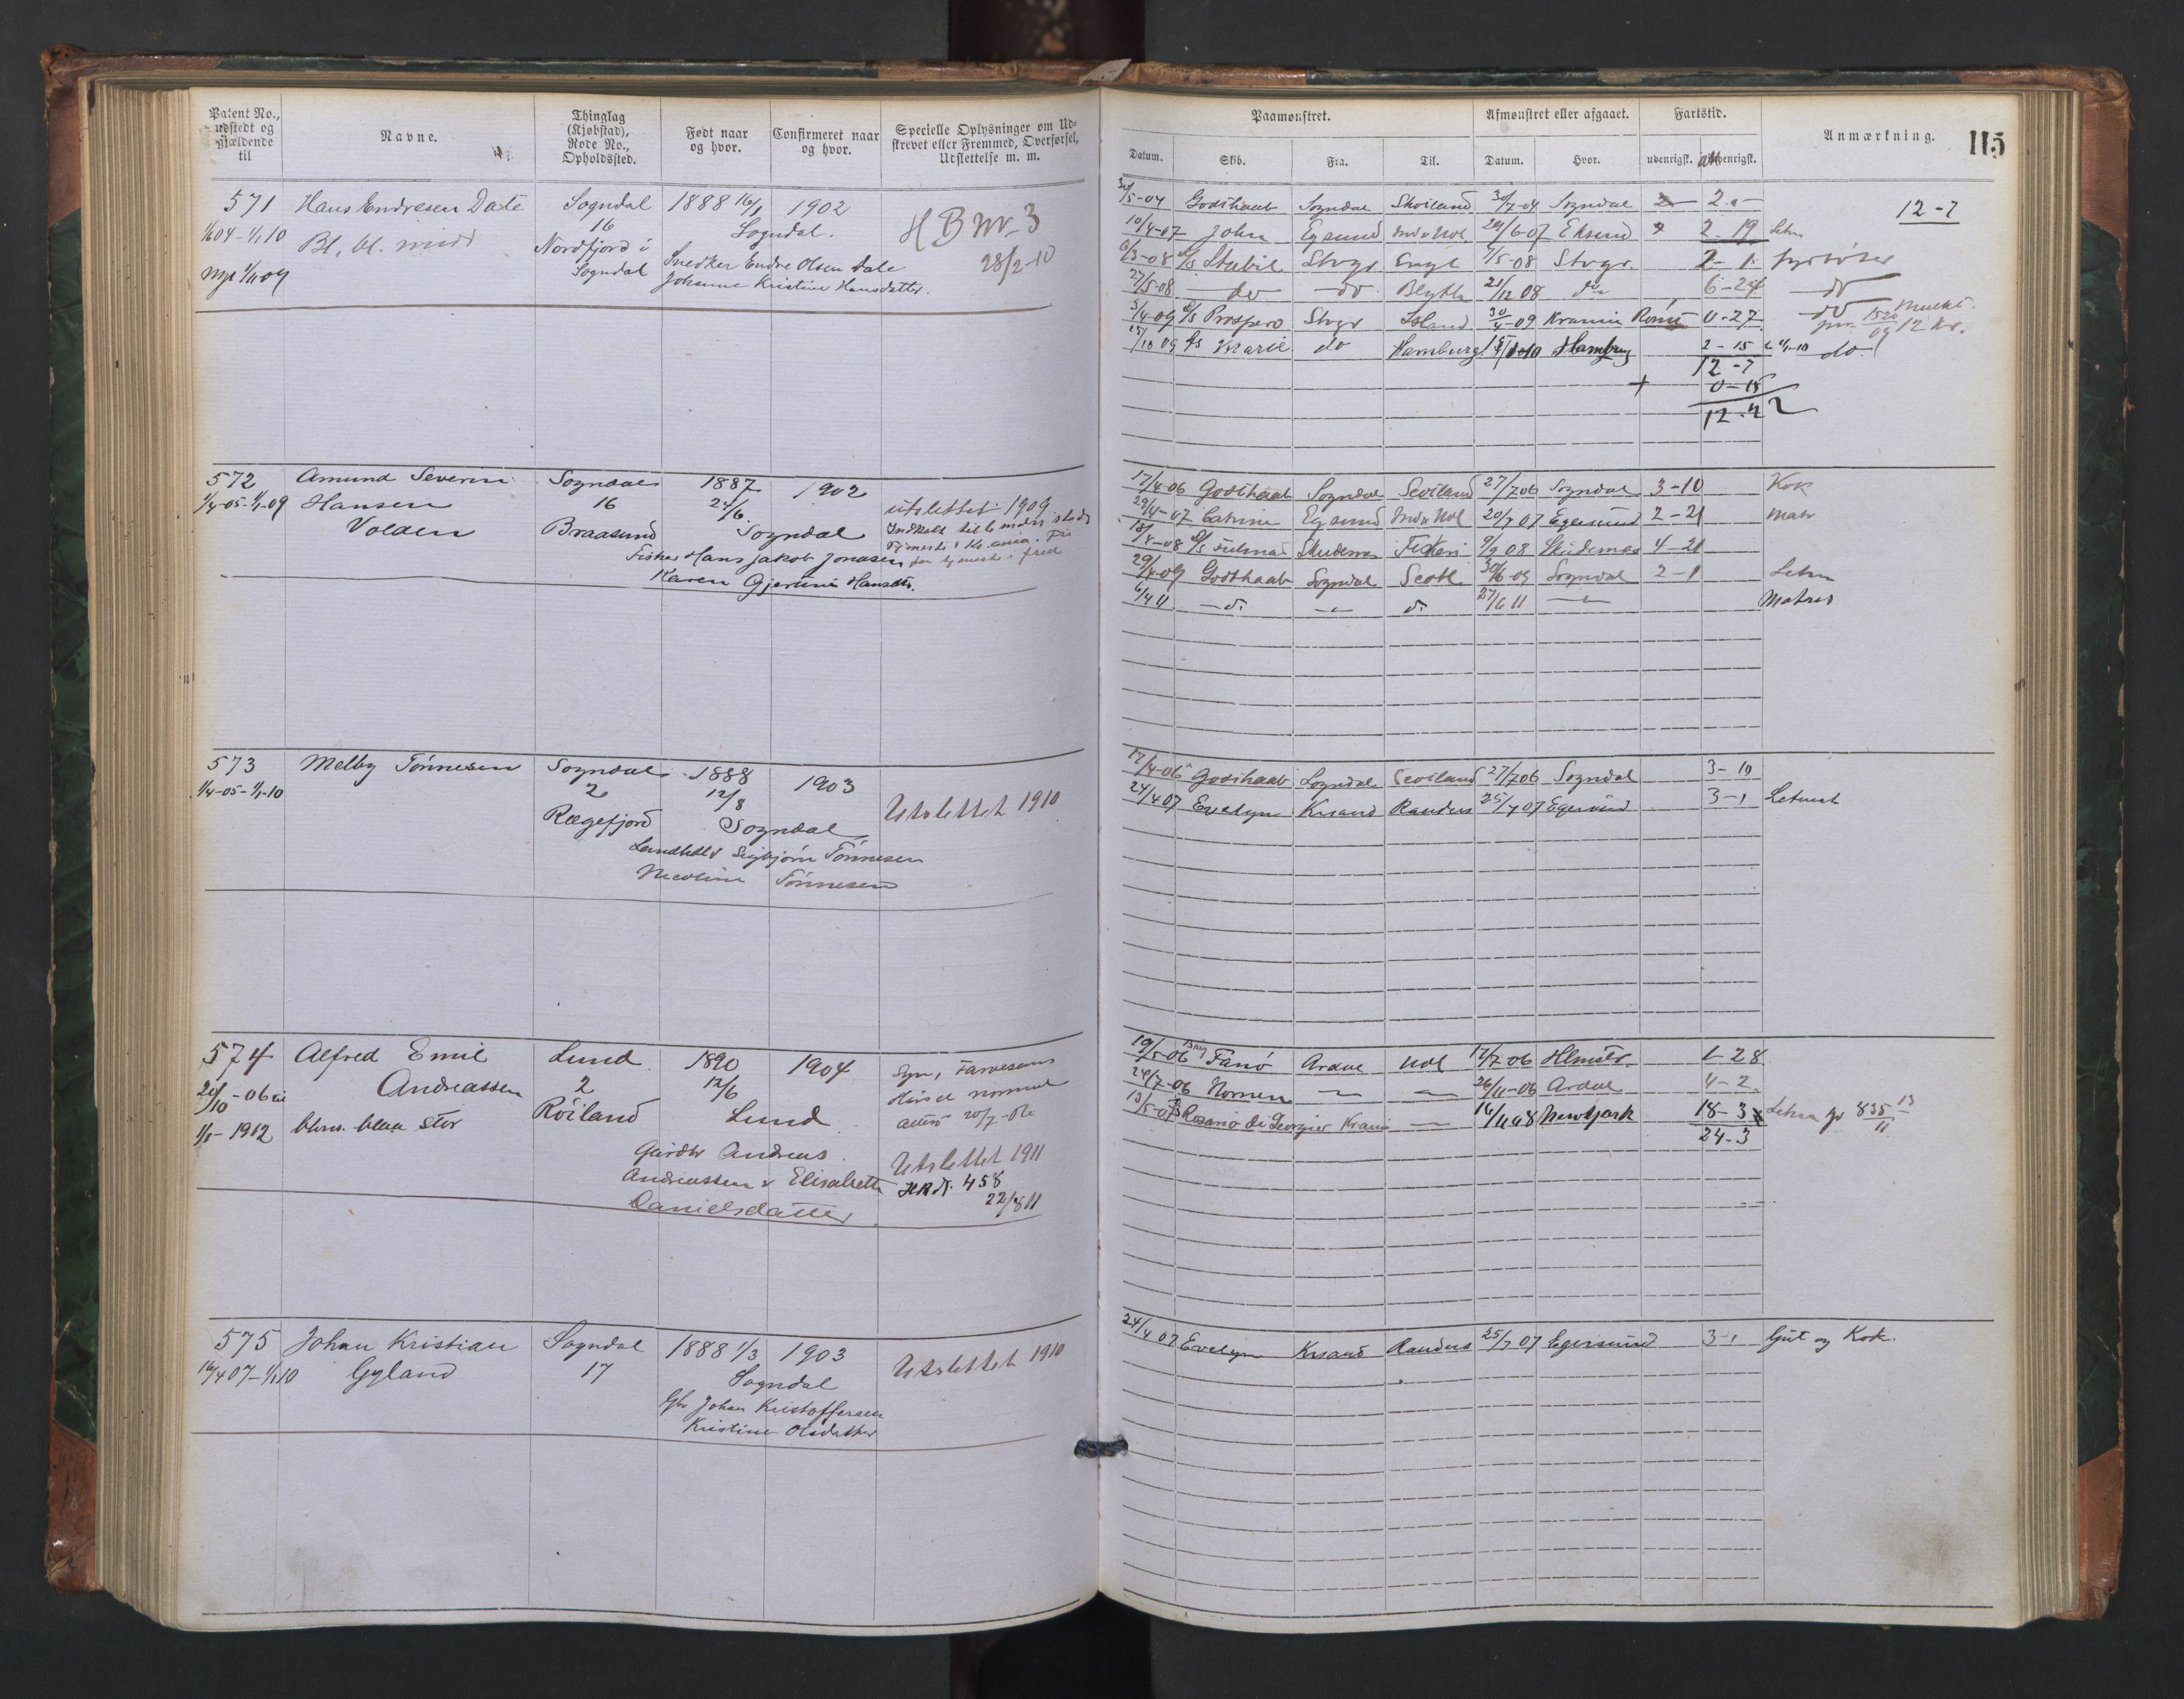 Patent No., udstedt og gjældende til
Navne.
Thinglag (Kjøbstad), Rode No., Opholdssted.
Født naar og hvor.
Confirmeret naar og hvor.
Specielle Oplysninger om Udskrevet eller Fremmed, Overførsel, Udslettelse m. m.
Paamønstret.
Afmønstret eller afgaaet.
Fartstid.
Anmærkning.
115
Datum. Skib. Fra. Til. Datum. Hvor. udenrigsk. indenrigsk.
571 Hans Endresen Dale Sogndal 1888 16/1 1902
Bl. bl. midd 16 Sogndal. HB nr. 3
Nordfjord i Snedker Endre Olsen Dale 28/2-10
Sogndal Johanne Kristine Hansdatter.
30/5-04 Godthaab Sogndal Skotland 30/7-04 Sogndal 2.0
12-7
10/4-07 John Egsund Ind & Udl. 29/6-07 Eksund 2. 19
6/3-08 D/S Stabil Stvgr Engl 7/5-08 Stvgr. 2-1. fyrbøter
27/5-08 do do Blyth 21/12 08 do 6-24 do
3/4-09 D/S Prospero Stvgr Island 30/4-09 0-27 do
15/10 09 D/S Marie do Hamburg Hamburg 2-15 do
12-7
0-15
12-22
572 Amund Severin Sogndal 1887 1902
1/4-05-1/1-09 Hansen 16 24/6 utslettet 1909
Volden Braasund Sogndal
Fisker Hans Jakob Jonassen
Karen Gjerine Hansdtr.
17/4-06 Godthaab Sogndal Scotland 27/7 06 Sogndal 3-10 Kok
29/4-07 Catrine Egsund Ind & Udl 20/7 07 Egersund 2-21 Matr
Skudenes Fiskeri 9/9 08 Skudenes 4-21
29/4-09 Godthaab Sogndal Scotl. 30/6-09 Sogndal 2-1 Letm
6/4 11 d. d. 27/6 11 Matros
573 Melby Tønnesen Sogndal 1888 1903
1/4-05-1/1-10 2 12/8 Utslettet 1910
Rægefjord Sogndal
Landhdlr Sigbjørn Tønnesen
Nicoline Tønnesen
17/4-06 Godthaab Sogndal Scotland 27/7 06 Sogndal 3-10
24/4 07 Evelyn Krsand Randers 25/7 07 Egersund 3-1 Letmat
574 Alfred Emil Lund 1890 1904 Syn, Farvesans
Andreassen 2 12/6 Hørsel normal
1/1-1912 blaa stor Røiland Lund attest 20/7-06
Gaardbr Andreas Utslettet 1911
Andreassen & Elisabeth 458
Danielsdatter 22/8 11
19/5-06 Brig Fanö Ardal Udl 17/7-06 1-28
24/7-06 Nornen 26/11-06 Ardal 4-2
13/5-07 Rosario di Georgio Krsand 16/11 08 Newyork 18-3 Letm
24-3
575 Johan Kristian Sogndal 1888 1/3 1903 Utslettet 1910
16/4 07-1/1 10 Gyland 17 Sogndal
Gbr Johan Kristoffersen
Kristine Olsdatter
24/4 07 Evelyn Krsand Randers 25/7 07 Egersund 3-1 Gut og Kok.